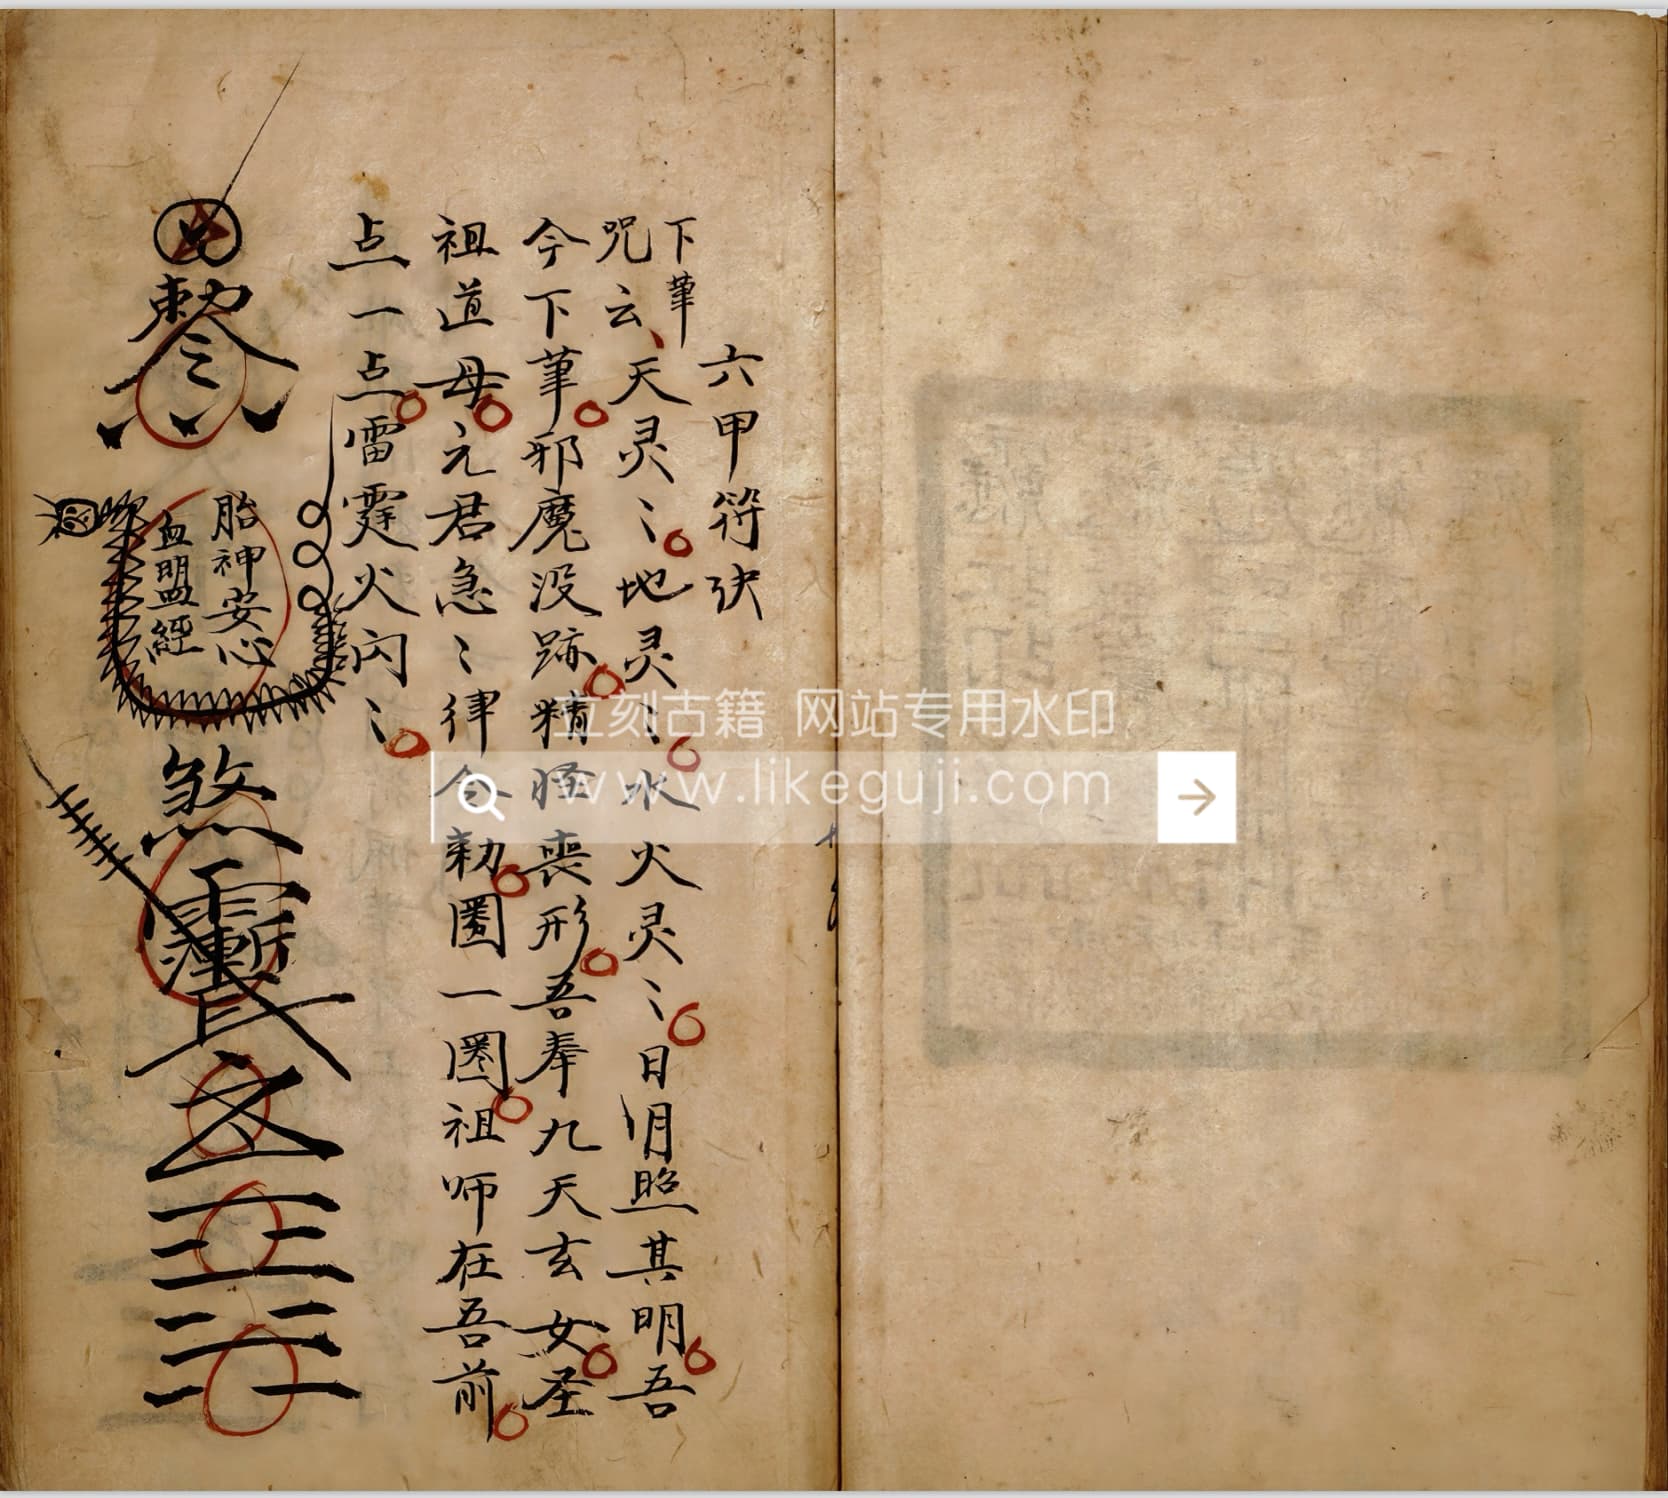 六甲符诀
下筆
咒云天灵〻地灵〻水火灵〻日月照其明吾
今下筆邪魔没跡精怪喪形吾奉九天玄女圣
祖道母元君急〻律令勅圈一圈祖师在吾前
点一点雷霆火闪〻
敕令
胎神安心
血盟經
煞
立刻古籍 网站专用水印
www.likeguji.com